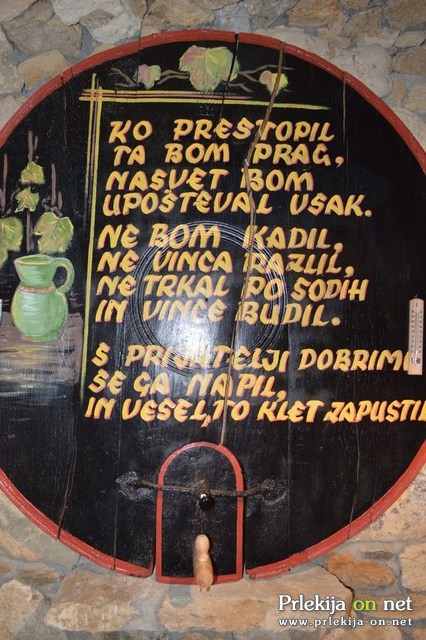 KO PRESTOPIL
TA BOM PRAG,
NASVET BOM
UPOŠTEVAL VSAK.
NE BOM KADIL,
NE VINCA RAZLIL,
NE TRKAL PO SODIH
IN VINCE BUDIL.
S PRIJATELJI DOBRIMI
SE GA NAPIL,
IN VESEL, TO KLET ZAPUSTIL
Prlekija on net
www.prlekija-on.net